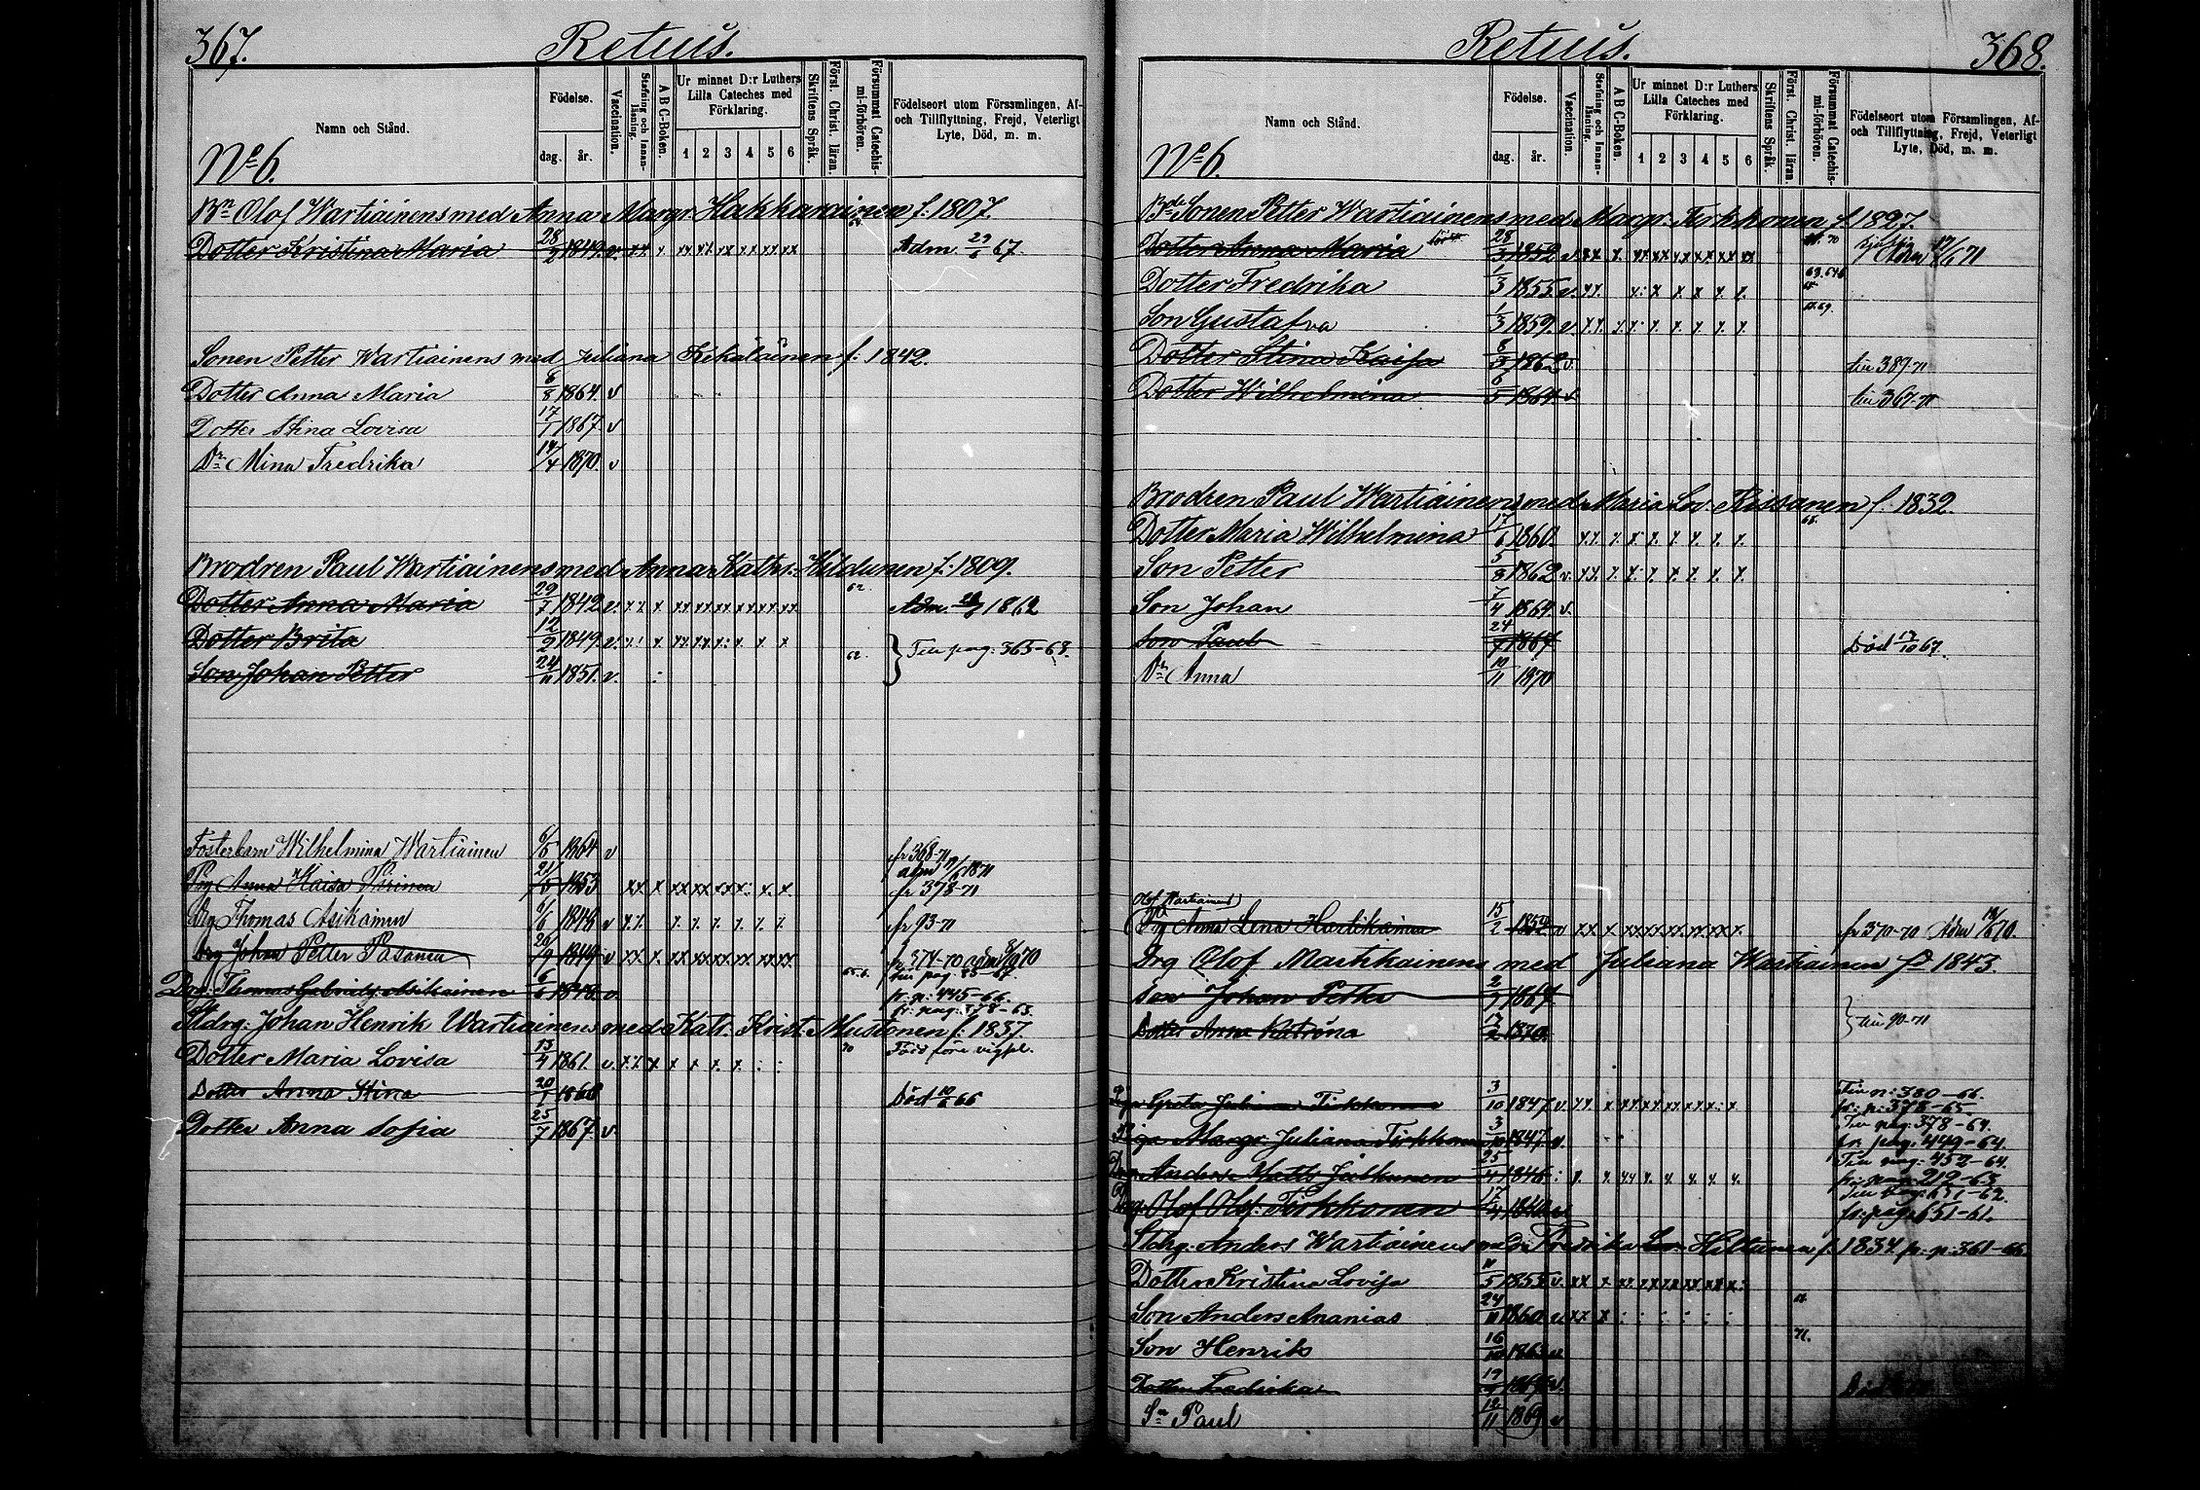 367.
Retuus.
Namn och Stånd.
Födelse.
dag.
år.
Vaccination.
Stafning och Innan-läsning.
A B C-Boken.
Ur minnet D:r Luthers
Lilla Cateches med
Förklaring.
1 2 3 4 5 6
Skriftens Språk.
Först. Christ. läran.
Försummat Catechis-mi-förhören.
Födelseort utom Församlingen, Af-
och Tillflyttning, Frejd, Veterligt
Lyte, Död, m. m.
No 6.
Bn Olof Wartiainens med Anna Margr. Hakkarainen f. 1807.
Dotter Kristina Maria 28/2 1849. v. Adm. 29/6 67.
Sonen Petter Wartiainens med Juliana Kekäläinen f. 1842.
Dotter Anna Maria 8/8 1864. v
Dotter Stina Lovisa 17/7 1867. v
Dr Mina Fredrika 14/4 1870 v
Brodren Paul Wartiainens med Anna Kathr. Hildunen f. 1809.
Dotter Anna Maria 29/7 1842 v. 62. Adm. 1862
Dotter Brita 12/2 1849. v.
Till pag. 365-68.
Son Johan Petter 24/11 1851. v. 62.
Fosterbarn Wilhelmina Wartiainen 6/5 1864 v fr 368-71
Pig Anna Kaisa Piirinen 21/5 1853 fr 378-71
Drg Thomas Asikainen 6/6 1848 v fr 93-71
Drg Johan Petter Pasanen 26/9 1849 v fr 374-70
till pag. 85-67
Drg. Thomas Gabrielss. Asikainen 6/6 1848 v. fr. p: 445-66.
fr. pag. 378-63.
Stdrg. Johan Henrik Wartiainens med Katr. Krist. Mustonen f. 1837.
Dotter Maria Lovisa 13/4 1861. v 70 Född före vigsel.
Dotter Anna Stina 20/1 186 Död 10/6 66
Dotter Anna Sofia 25/7 1867. v.
Retuus.
368.
Namn och Stånd.
Födelse.
dag.
år.
Vaccination.
Stafning och Innan-läsning.
A B C-Boken.
Ur minnet D:r Luthers
Lilla Cateches med
Förklaring.
1 2 3 4 5 6
Skriftens Språk.
Först. Christ. läran.
Försummat Catechis-mi-förhören.
Födelseort utom Församlingen, Af-
och Tillflyttning, Frejd, Veterligt
Lyte, Död, m. m.
No 6.
Bde Sonen Petter Wartiainens med Margr. Tirkkonen f. 1827.
Dotter Anna Maria 28/3 1852 v.
Dotter Fredrika 1/3 1855. v.
Son Gustafva 1/3 1859. v.
Dotter Stina Kaisa 8/3 1862 v. till 389-71
Dotter Wilhelmina 6/5 1864 v. till 367-71
Brodren Paul Wartiainens med Maria Lov. Rissanen f. 1832.
Dotter Maria Wilhelmina 17/6 1860
Son Petter 5/8 1862 v.
Son Johan 7/4 1864 v.
Son Paul 24/7 1867 Död 67.
Dr Anna 10/11 1870
Olof Wartiainens
Pig Anna Lena Hartikainen 15/2 1852 v fr 370-70 Adm 70
Drg Olof Martikainens med Juliana Wartiainen f. 1843.
Son Johan Petter 2/7 1867
Dotter Anna Katrina 17/2 1870 till 90-71
Piga Greta Juliana Tirkkonen 3/10 1847 v. Till p: 380-66.
fr. p: 378-65.
Piga Margr. Juliana Tirkkonen 3/10 1847 v. Till pag. 378-64.
fr. pag. 449-64
Drg. Anders Matts. Jalkanen 25/11 1846 Till pag. 452-64.
fr. pag. 212-63
Drg. Olof Olofs. Tirkkonen 17/4 1840 Till pag. 651-62.
fr. pag. 651-61.
Stdrg. Anders Wartiainens med Fredrika Lov. Hiltunen f. 1834 fr. p: 361-66.
Dotter Kristina Lovisa 11/5 1855 v.
Son Anders Ananias 24/11 1860. v.
Son Henrik 16/10 1863 v. 71.
Dotter Fredrika
Sn Paul 12/11 1869 v